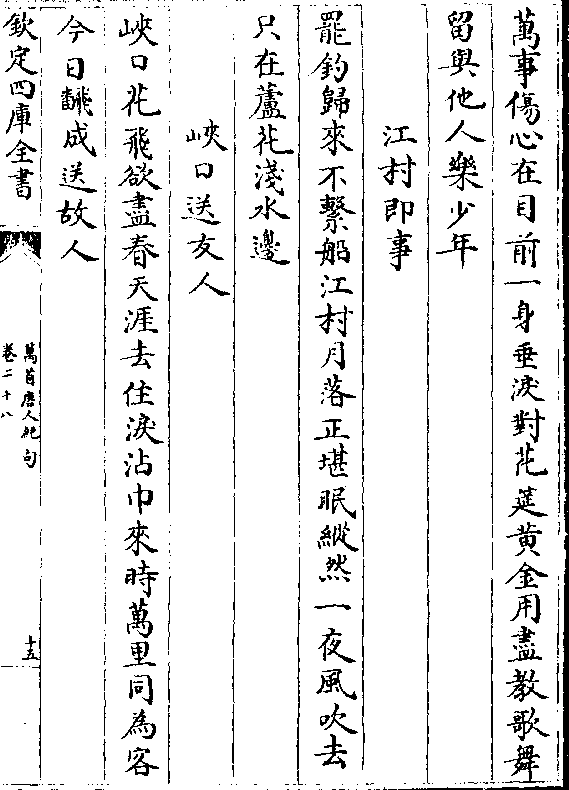 萬事傷心在目前一身垂淚對花筵黄金用盡教歌舞
留與他人樂少年
江村即事
罷釣歸來不繫船江村月落正堪眠縱然一夜風吹去
只在蘆花淺水邊
峽口送友人
峽口花飛欲盡春天涯去住淚沾巾來時萬里同為客
今日飜成送故人
欽定四庫全書
萬首唐人絶句
卷二十八
十五